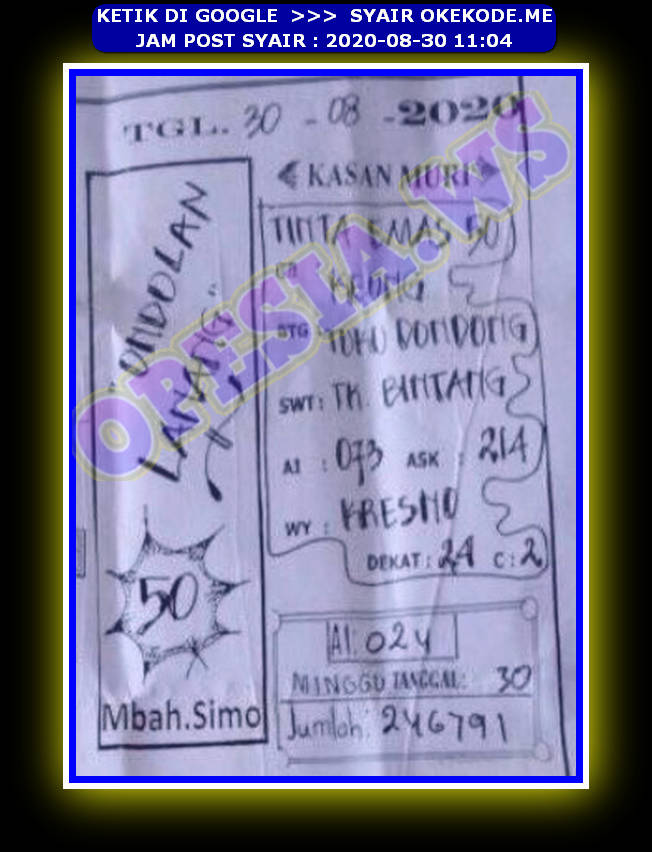 KETIK DI GOOGLE >>> SYAIR OKEKODE.ME
JAM POST SYAIR : 2020-08-30 11:04
TGL. 30 - 08 - 2020
KASAN MURI
TINTA EMAS 50
CB KEONG
STG TOKO DONDONG
SWT: TK. BINTANG
AI : 073 ASK : 214
WY : KRESNO
DEKAT: 24 C: 2
"ONDOLAN
LANANG"
50
Mbah.Simo
AI: 024
MINGGU TANGGAL: 30
Jumlah: 246791
OPESIA.WS